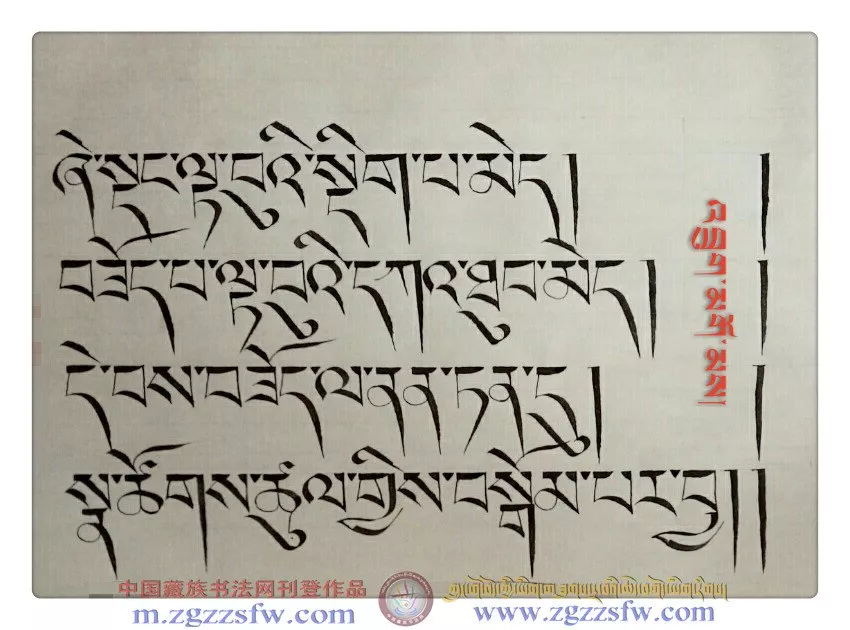 ཞེ་སྡང་ལྟ་བུའི་སྡིག་པ་མེད། །
བཟོད་པ་ལྟ་བུའི་དཀའ་ཐུབ་མེད། །
དེ་བས་བཟོད་ལ་ནན་ཏན་དུ། །
སྣ་ཚོགས་ཚུལ་གྱིས་བསྒོམ་པར་བྱ། །
中国藏族书法网刊登作品
m.zgzzsfw.com
www.zgzzsfw.com